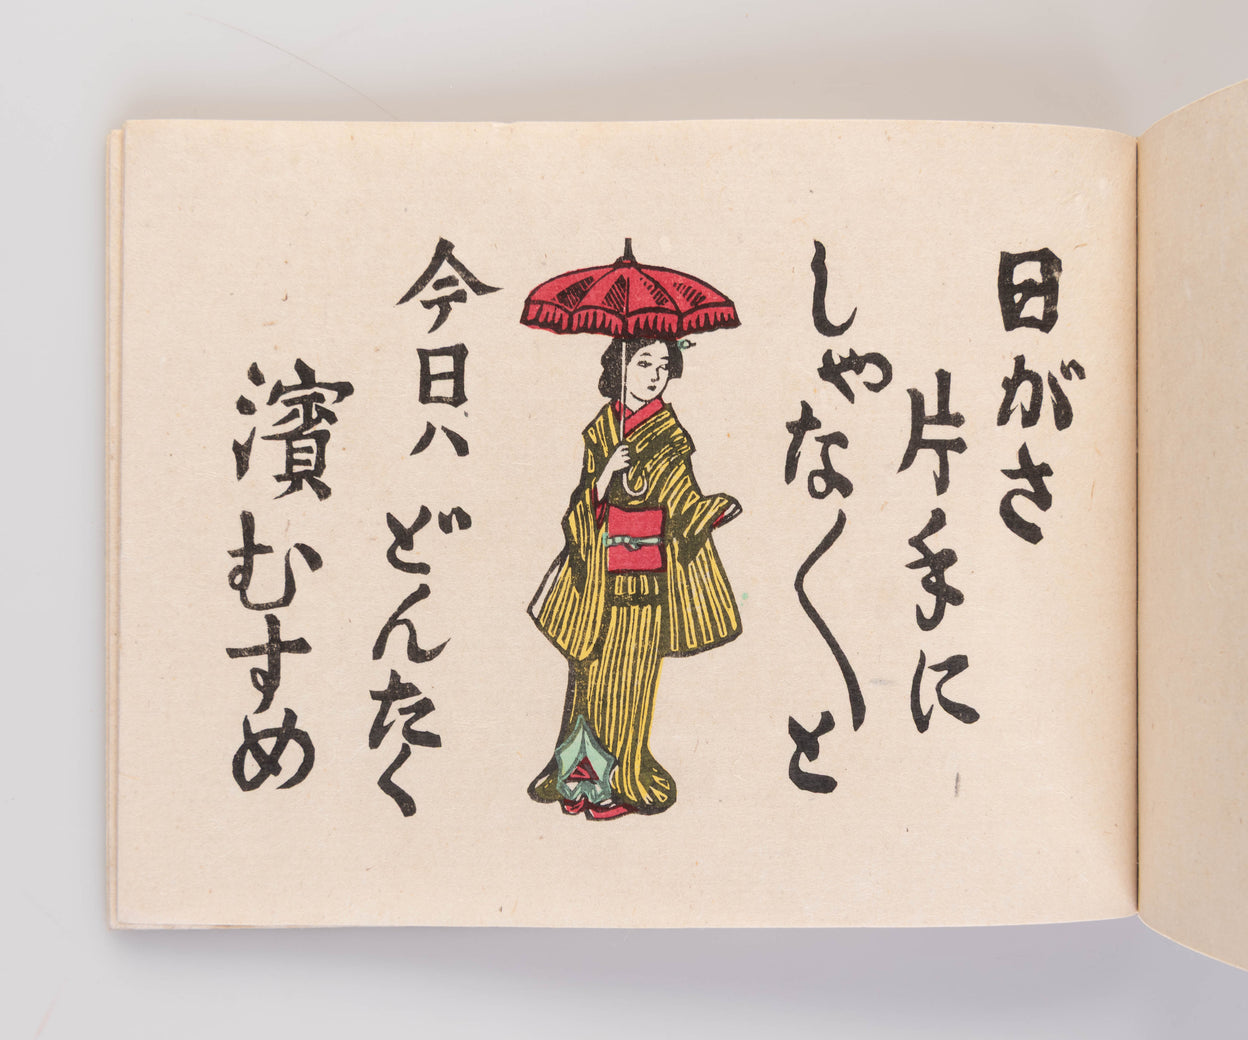 日がさ
片手に
しゃな〱と
今日ハ どんたく
濱むすめ